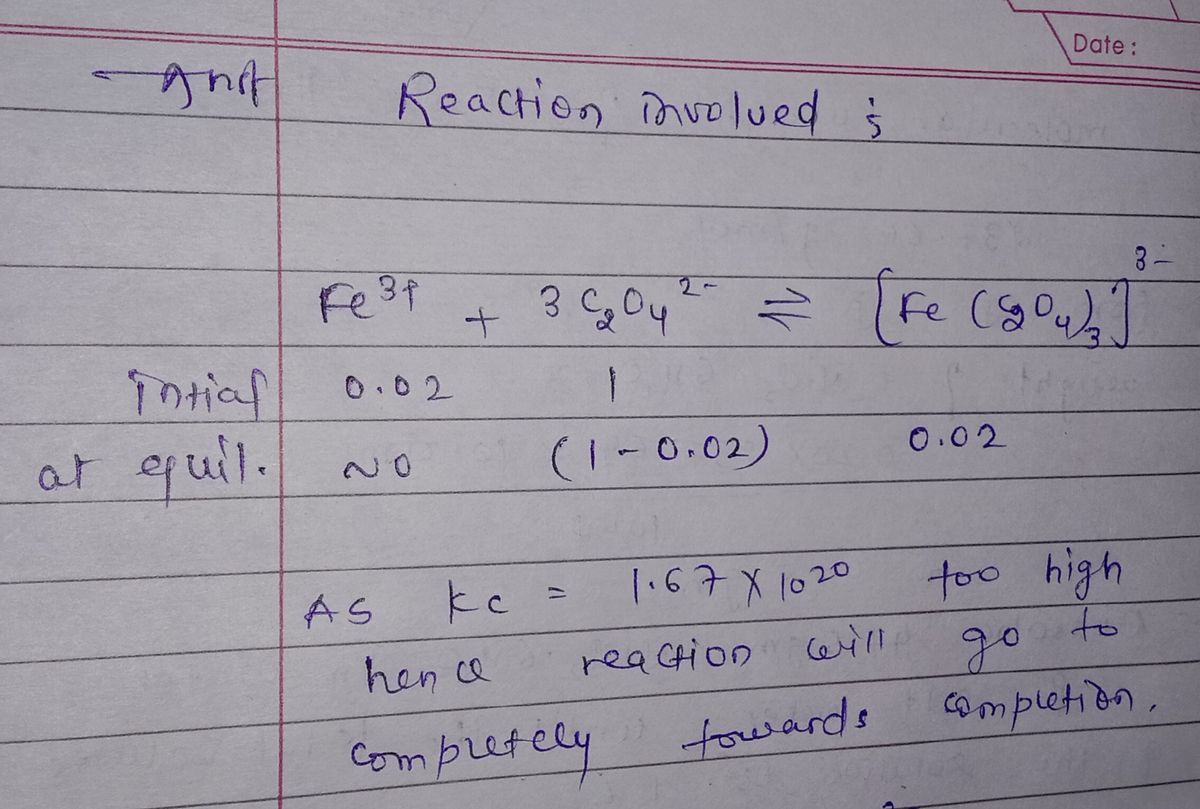 Date :
Ans
Reaction involved ;
3-
Fe 3+ + 3 C2O4 2- ⇌ [Fe (C2O4)3]
Intial 0.02 1
at equil. ~0 (1-0.02) 0.02
AS kc = 1.67 X 10 20 too high
hence reaction will go to
completely towards completion.